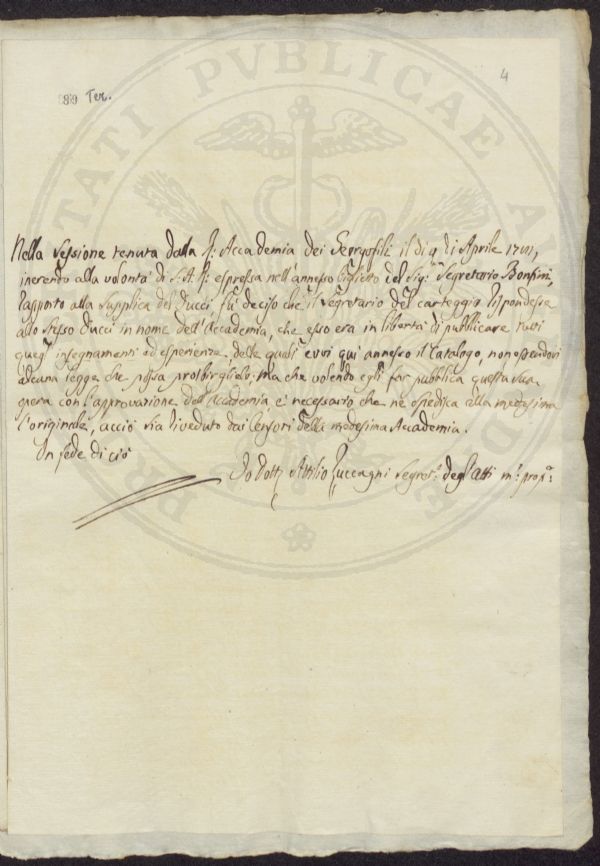 4
Ter.
PROSPERITATI PVBLICAE AV
Nella Sessione tenuta dalla R. Accademia dei Georgofili il dì 9 di Aprile
inerendo alla volontà di S. A. R. espressa nell'annesso biglietto del Sig.r Segretario Bonfini,
rapporto alla supplica del Ducci fù deciso che il Segretario del carteggio rispondesse
allo stesso Ducci in nome dell'Accademia, che esso era in libertà di pubblicare tutti
quegl'insegnamenti ed esperienze delle quali evvi qui annesso il Catalogo, non essendovi
alcuna legge che possa proibirglielo. Ma che volendo egli far pubblica questa sua
opera con l'approvazione dell'Accademia è necessario che ne spedisca alla medesima
l'originale, acciò sia riveduto dai Censori della medesima Accademia.
In fede di ciò
Io Dott. Attilio Zuccagni Segret.o degl'Atti m.o prop.o